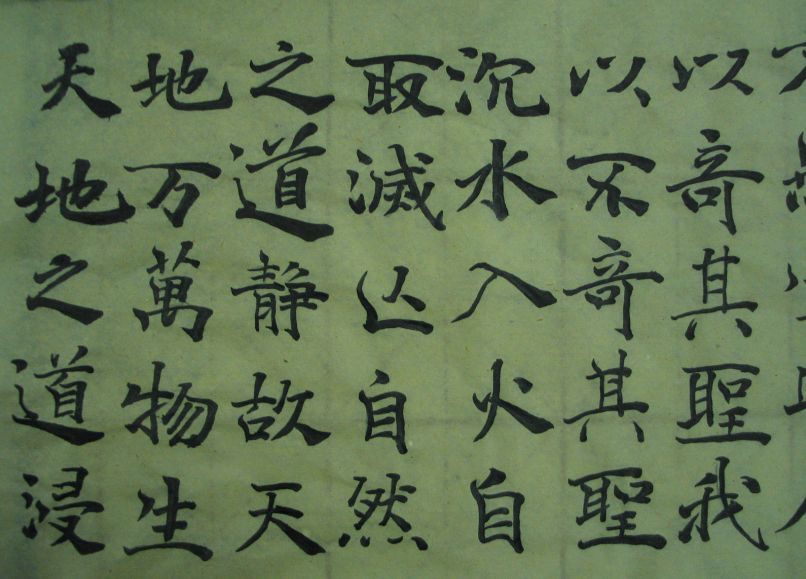 以竒其聖我
以不竒其聖
沉水入火自
取滅亾自然
之道静故天
地万萬物生
天地之道浸